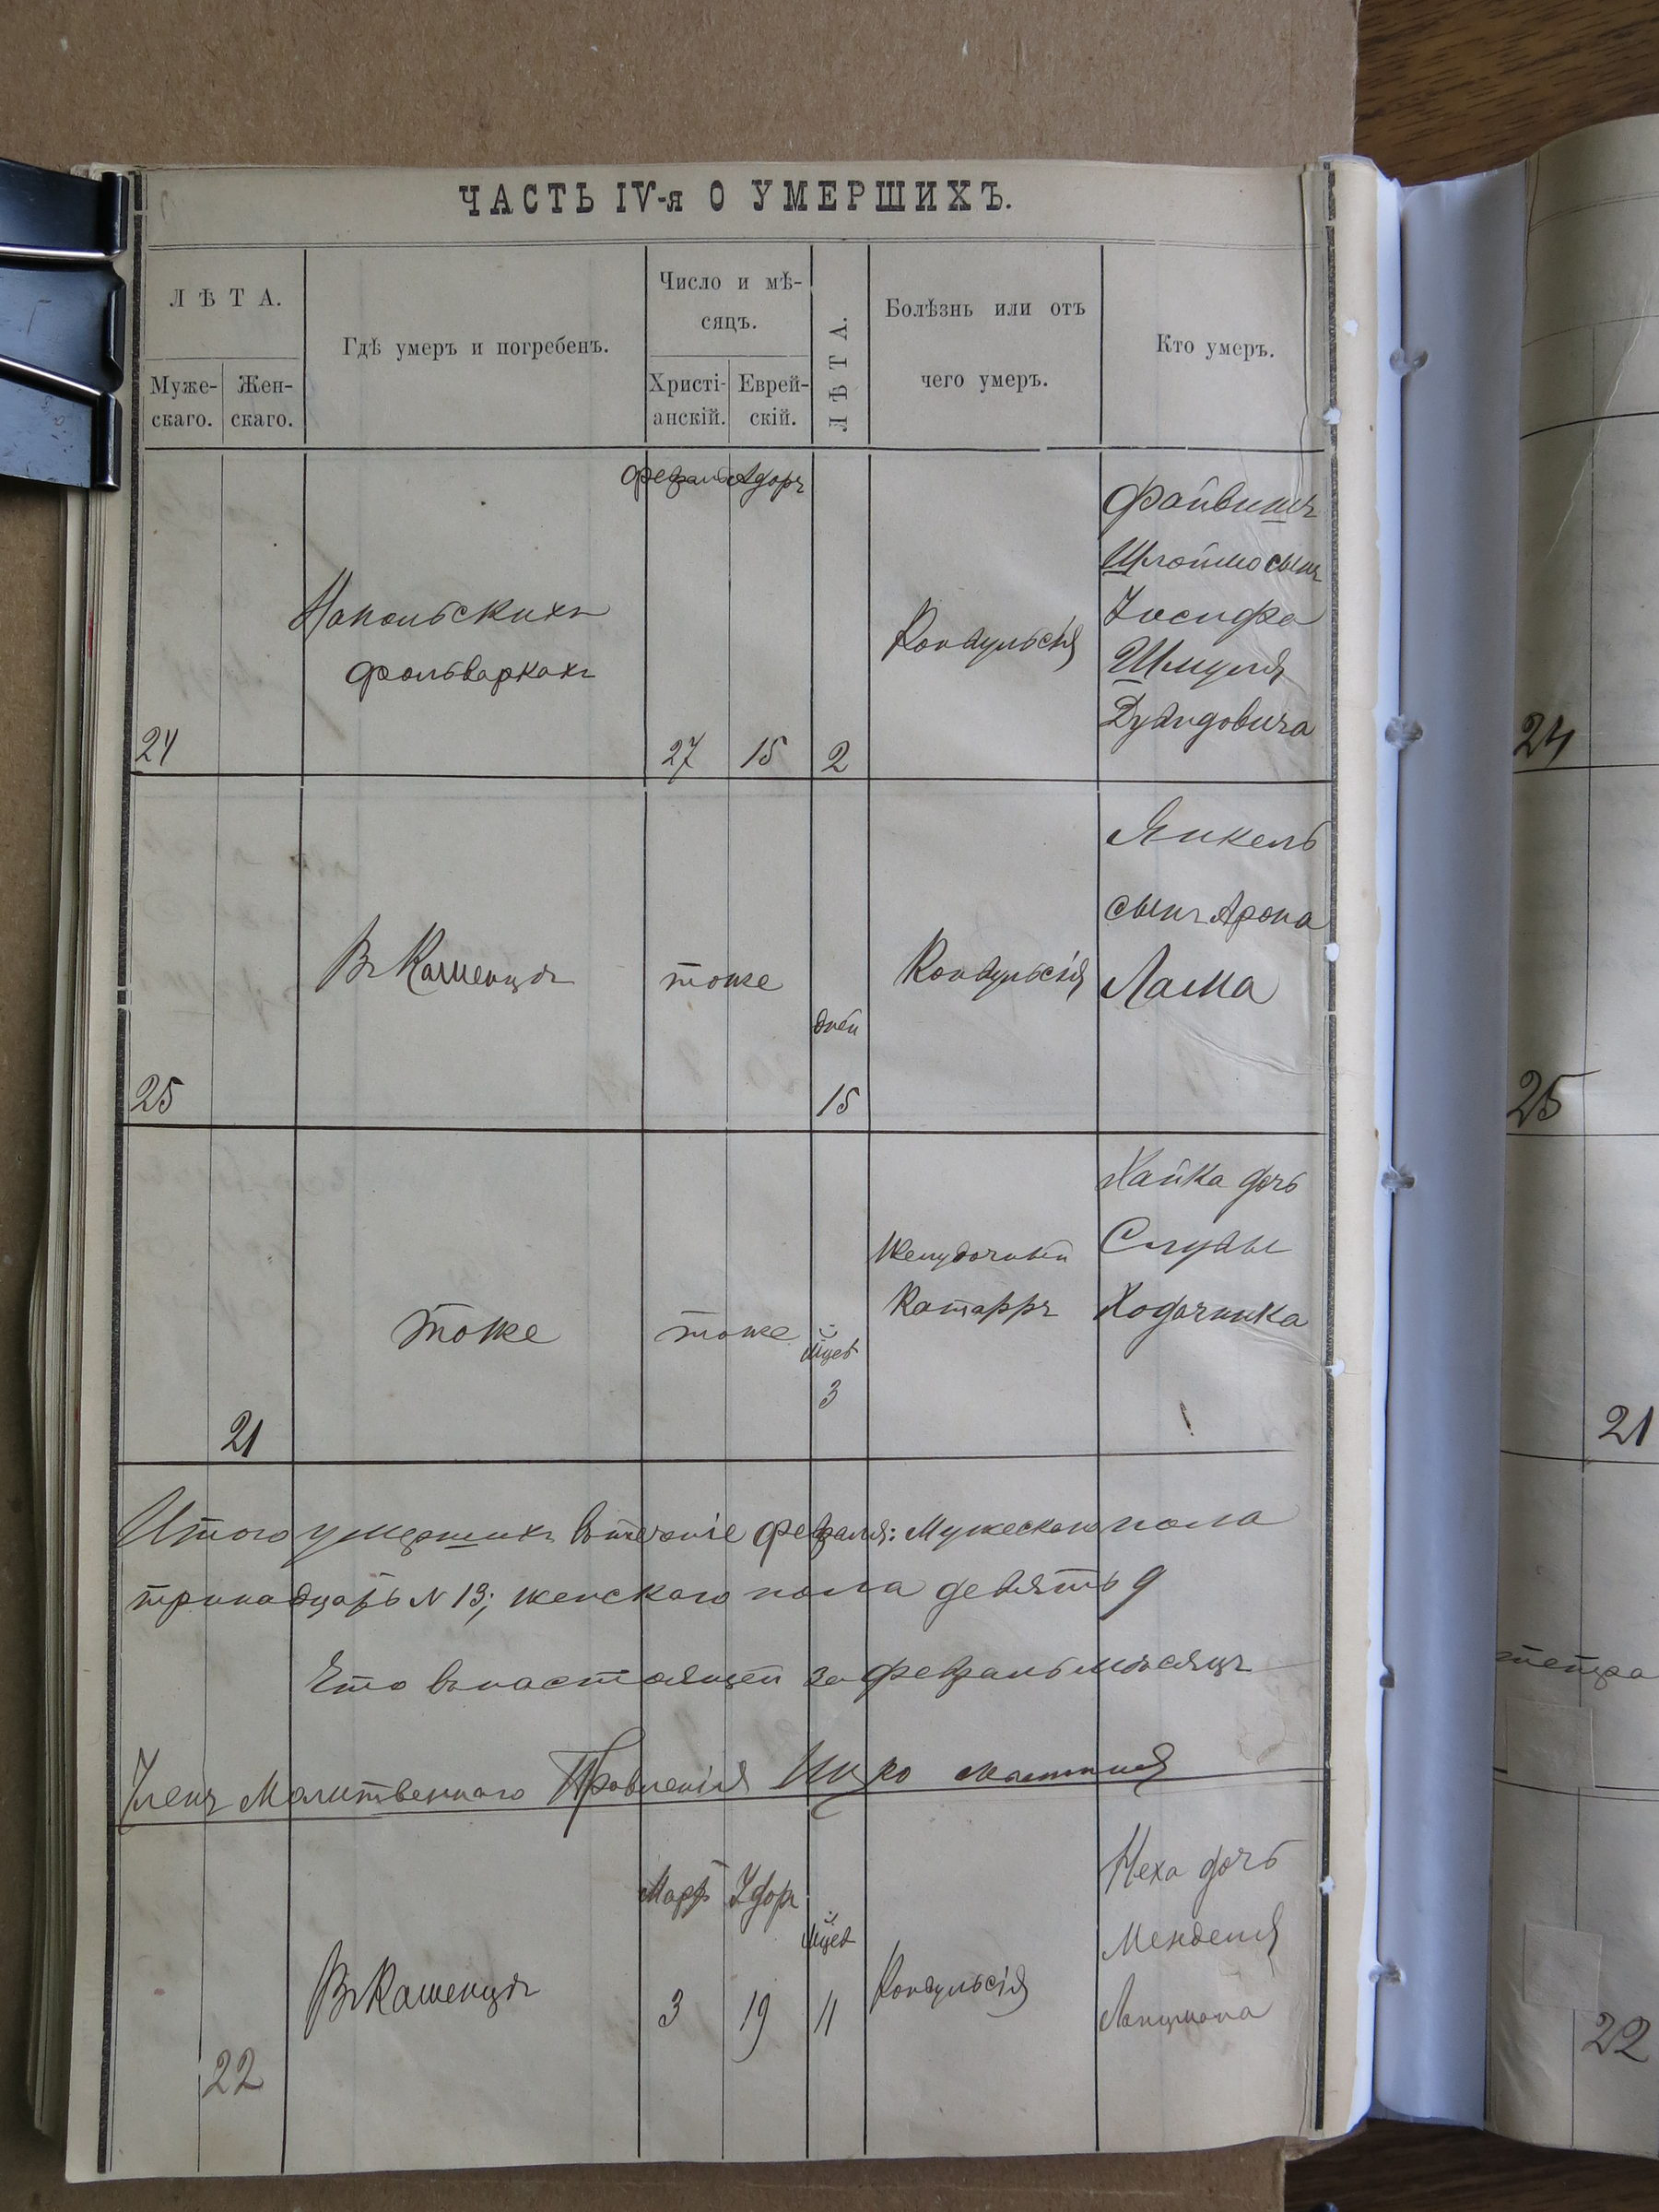 ЧАСТЬ IV-я О УМЕРШИХЪ.
ЛѢТА.
Муже-
скаго.
Жен-
скаго.
Гдѣ умеръ и погребенъ.
Число и мѣ-
сяцъ.
Христі-
анскій.
Еврей-
скій.
ЛѢТА.
Болѣзнь или отъ
чего умеръ.
Кто умеръ.
24
Напольскихъ
фольваркахъ
Февраль
Адаръ
27
15
2
Конвульсія
Файвишъ
Шлоймо сынъ
Іосифа
Шмуля
Давидовича
25
Въ Каменцѣ
тоже
дней
15
Конвульсія
Янкель
сынъ Арона
Лама
21
тоже
тоже
мѣсцев
3
Желудочный
Катарръ
Хайка дочь
Ходачника
Итого умершихъ втеченіе февраля: Мужескаго пола
тринадцать N 13; женскаго пола девять 9
Что внастоящей за февраль мѣсяцъ
Членъ Молитвеннаго Правленія
22
Въ Каменцѣ
Мартъ
Адаръ
3
19
11
Конвульсія
Неха дочь
Менделя
Ланцмана
24
25
21
22